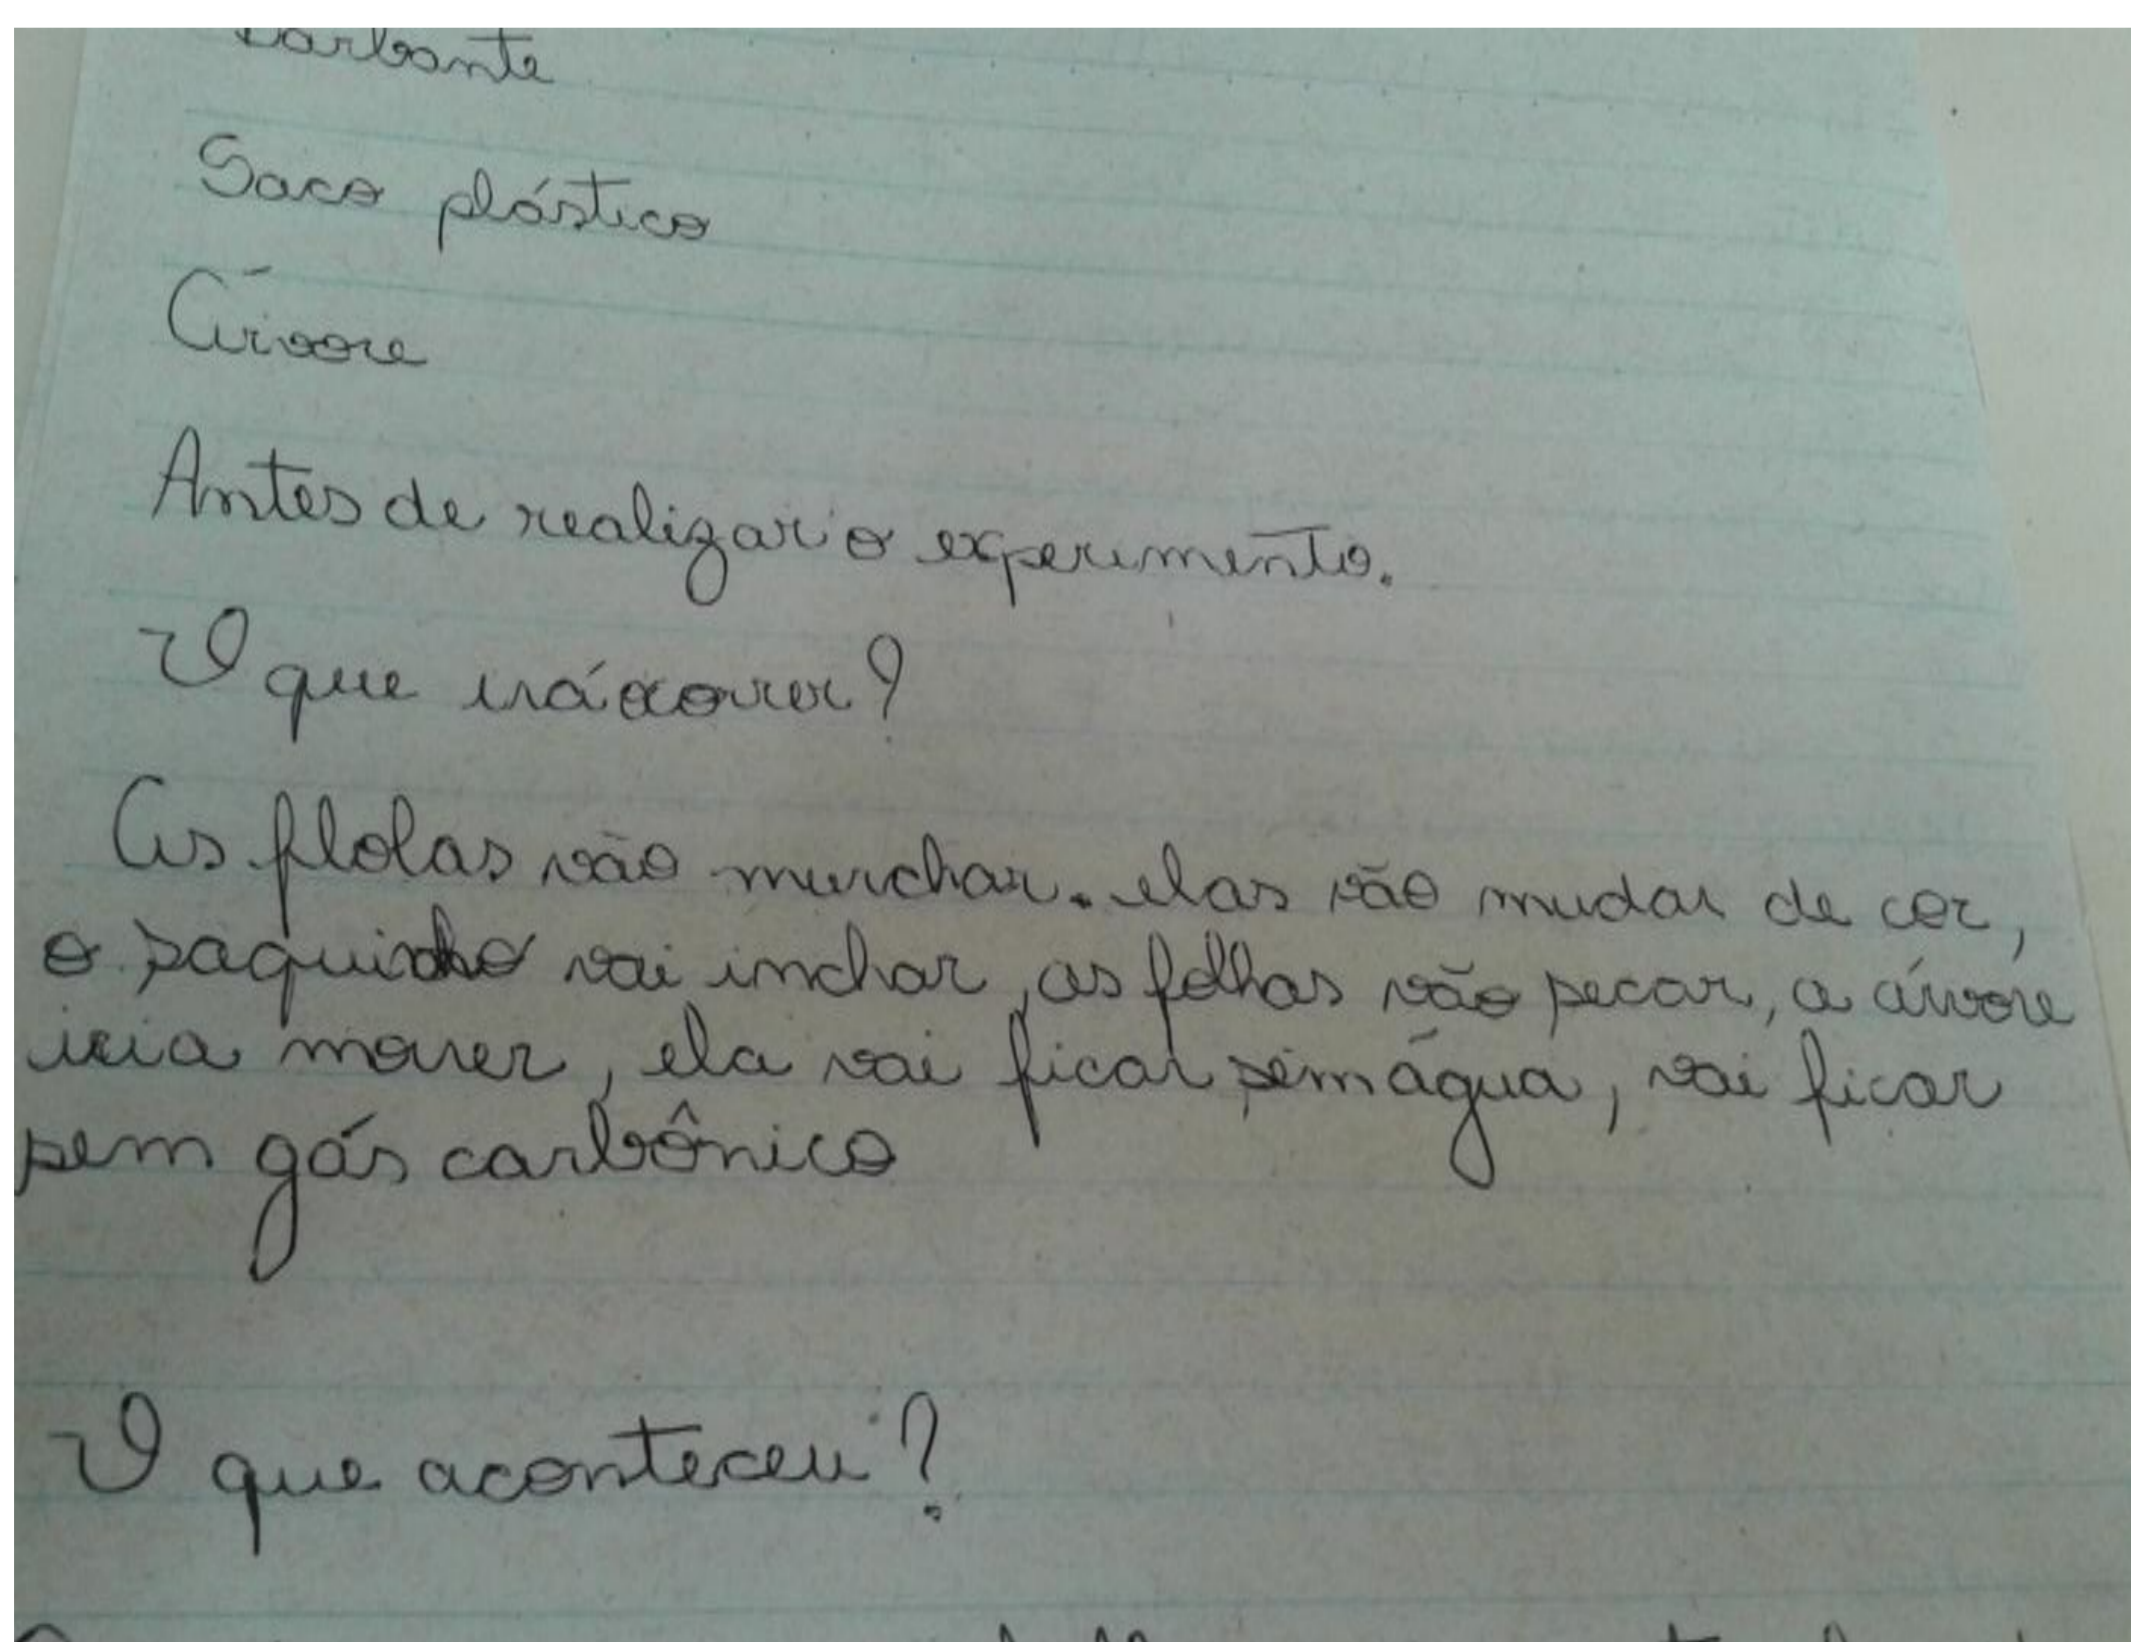 Barbante
Saco plástico
Árvore
Antes de realizar o experimento.
O que irá ocorrer?
As flolas vão murchar. elas vão mudar de cor,
o saquinho vai inchar, as folhas vão secar, a árvore
iria morrer, ela vai ficar sem água, vai ficar
sem gás carbônico
O que aconteceu?